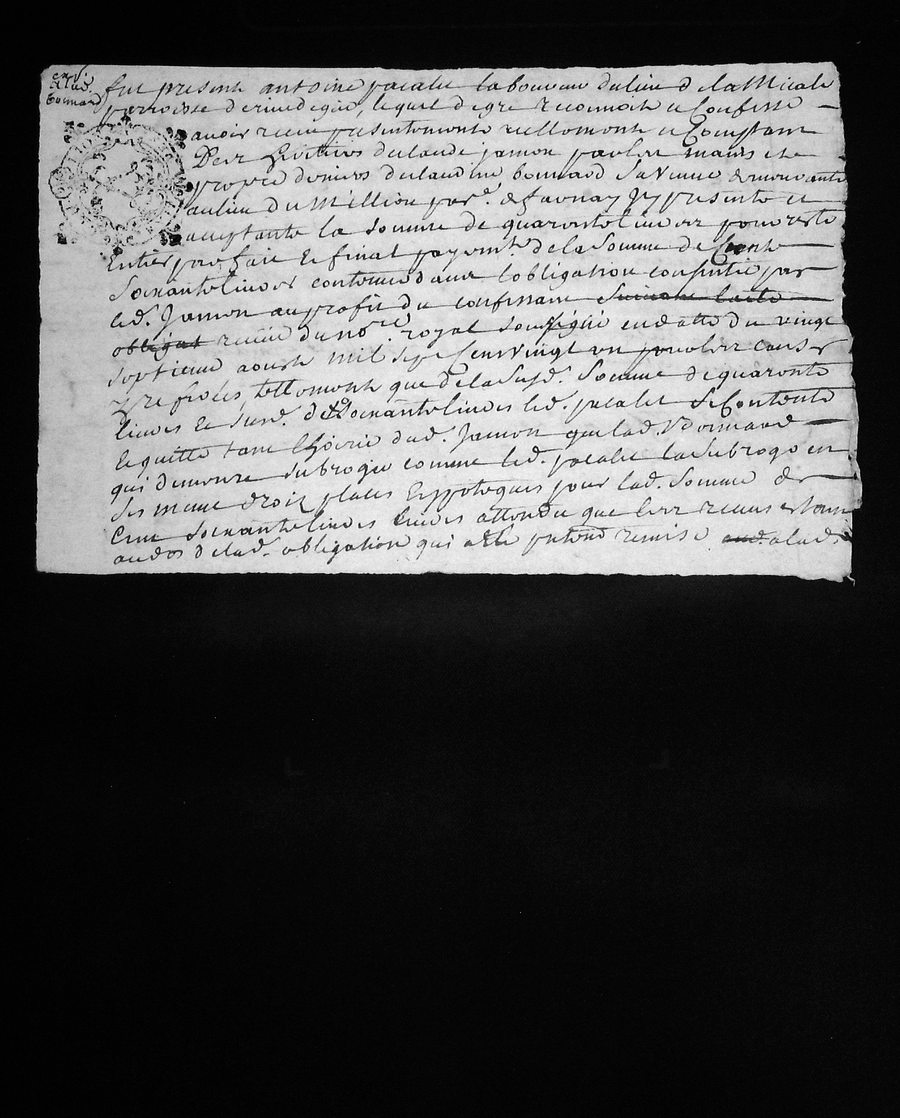 exp.
a lad.
bonnard
fut present antoine pacalet laboureur du lieu de la
perroisse de lequel de gre reconnoit et Confesse
avoir receu presentement reellement et Comptant
Des heritiers de claude jamon par les mains et
propre deniers de claudine bonnard sa veuve demeurante
au lieu du Million par.e de favnay jcy presente et
acceptante la somme de quarante livres pour reste
Entier parfait et final payemt. de la somme de Cente
Soixante livres contenue dans l'obligation consentie par
led. Jamon au profit du confessant suivant lacte
obligat receüe du nore. royal soussigné en datte du vingt
septieme aoust mil sept Cent vingt un pour les causes
y referées tellement que de la susd. somme de quarante
livres et susd. de soixante livres led. pacalet se Contente
et quitte tant lhoirie dud. Jamon que lad. bonnard
qui demeure subrogée comme led. pacalet la subroge en
ses meme droit places et hypoteques pour lad. somme de
Cent soixante livres attendu que les receus estant
au dos de lad. obligation qui a esté remise aud. a lad.